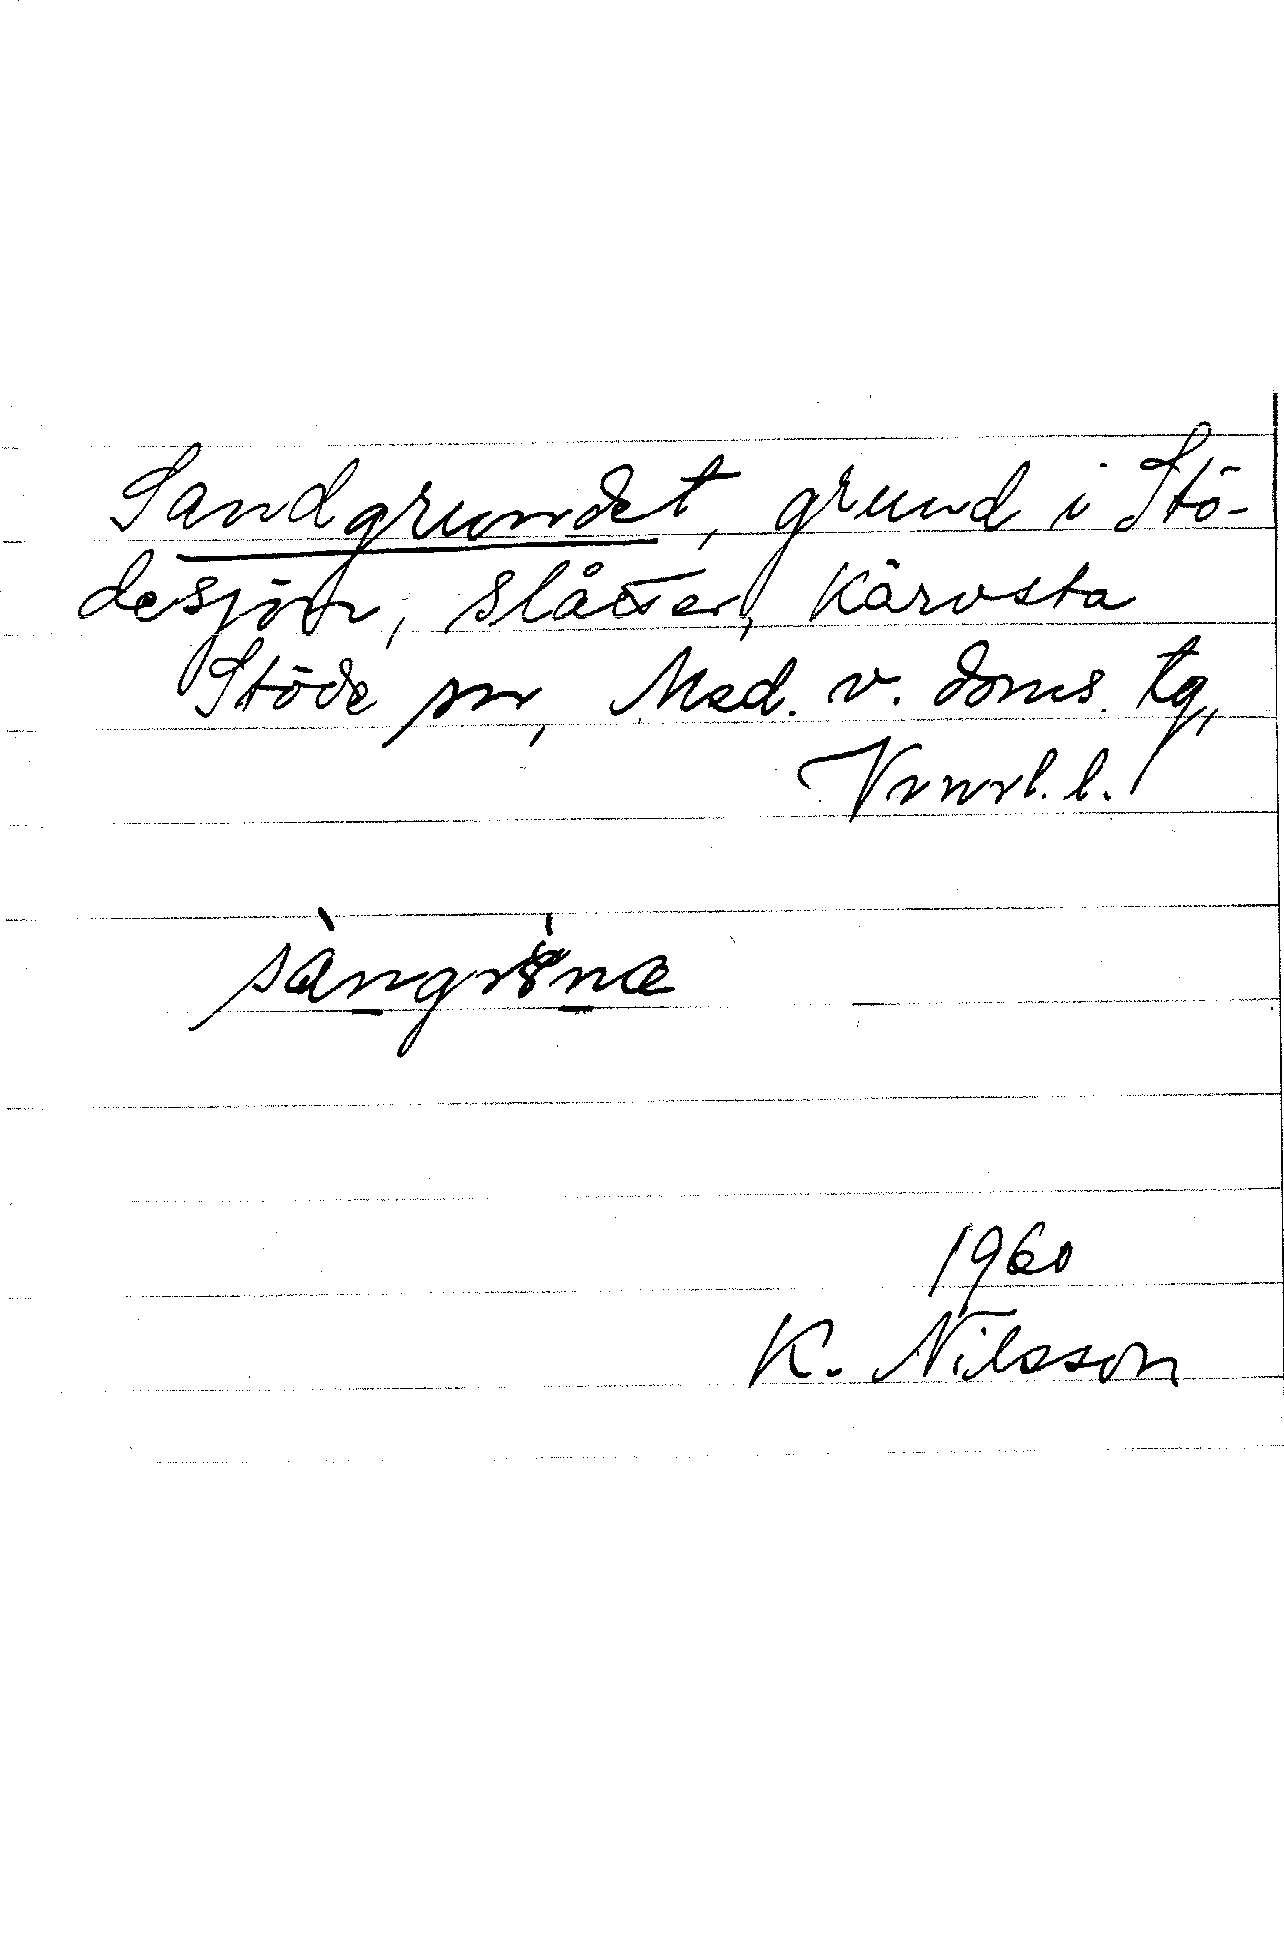 Sandgrundet, grund i Stö-
desjön, slåtter, Kärvsta
Stöde sn, Med. v. doms. tg,
Vnrl. l.
1960
K. Nilsson